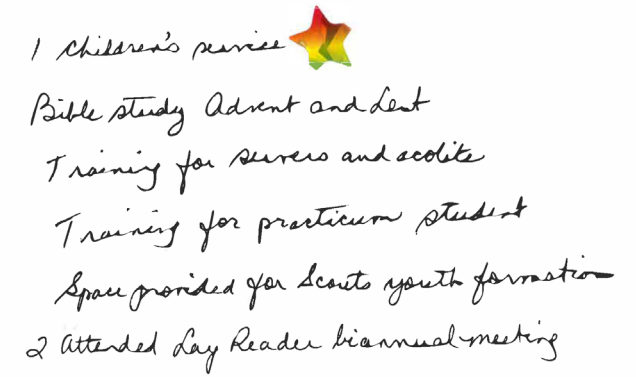 1 Children's service
Bible study Advent and Lent
Training for servers and acolite
Training for practicum student
Space provided for Scouts youth formation
2 Attended Lay Reader biannual meeting